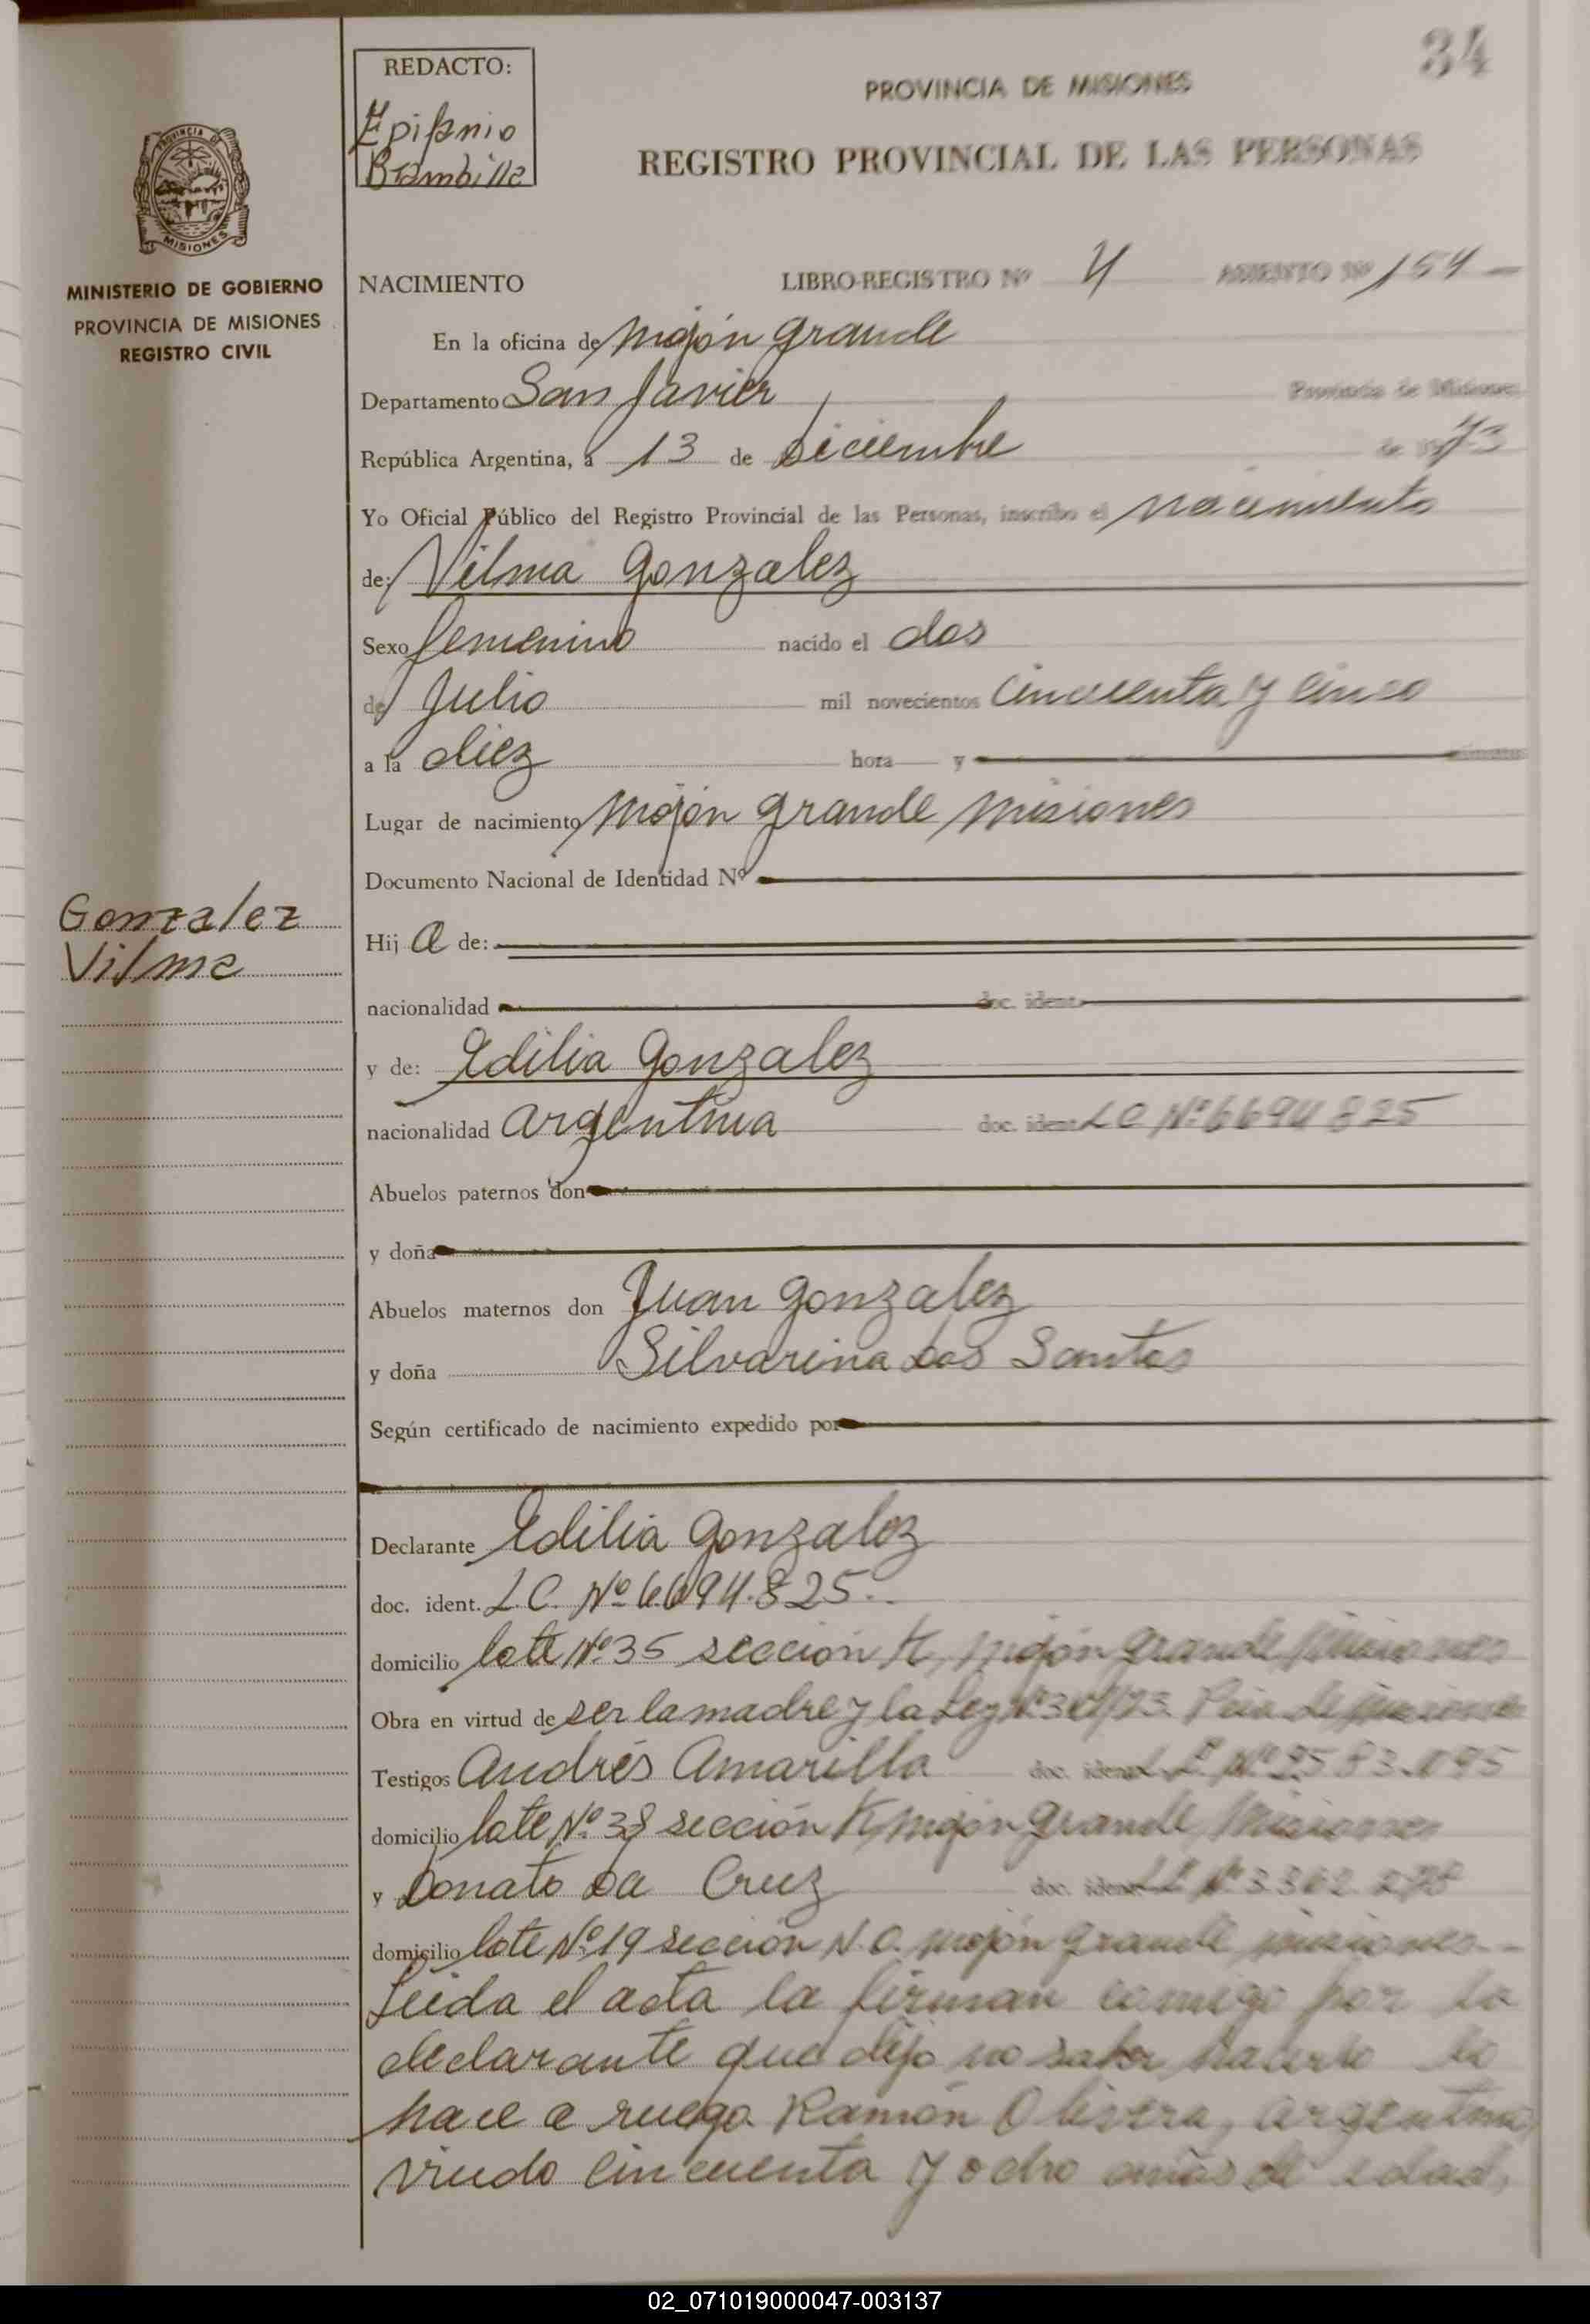 34
REDACTO:
Epifanio
Brambilla
PROVINCIA DE MISIONES
REGISTRO PROVINCIAL DE LAS PERSONAS
PROVINCIA DE
MISIONES
MINISTERIO DE GOBIERNO
PROVINCIA DE MISIONES
REGISTRO CIVIL
NACIMIENTO LIBRO-REGISTRO Nº 4 ASIENTO Nº 154
En la oficina de Mojón Grande
Departamento San Javier, Provincia de Misiones,
República Argentina, a 13 de Diciembre de 1973
Yo Oficial Público del Registro Provincial de las Personas, inscribo el nacimiento
de: Vilma Gonzalez
Sexo femenino nacido el dos
de Julio mil novecientos cincuenta y cinco
a la diez hora y minutos
Lugar de nacimiento Mojón Grande Misiones
Documento Nacional de Identidad Nº
Gonzalez
Vilma
Hij a de:
nacionalidad doc. ident.
y de: Edilia Gonzalez
nacionalidad argentina doc. ident. L C Nº 6694825
Abuelos paternos don
y doña
Abuelos maternos don Juan Gonzalez
y doña Silvarina Dos Santos
Según certificado de nacimiento expedido por
Declarante Edilia Gonzalez
doc. ident. L.C. Nº 6.694.825.-
domicilio lote Nº 35 sección K, Mojón Grande Misiones
Obra en virtud de ser la madre y la Ley Nº
Testigos Andrés Amarilla doc. ident.
domicilio lote Nº 38 sección K, Mojón Grande Misiones
y Donato Da Cruz doc. ident.
domicilio lote Nº 19 sección N.O. Mojón Grande Misiones.-
Leida el acta la firman comigo por la
declarante que dijo no saber hacerlo lo
hace a ruego Ramón Olivera, argentino,
viudo cincuenta y ocho años de edad,
02_071019000047-003137